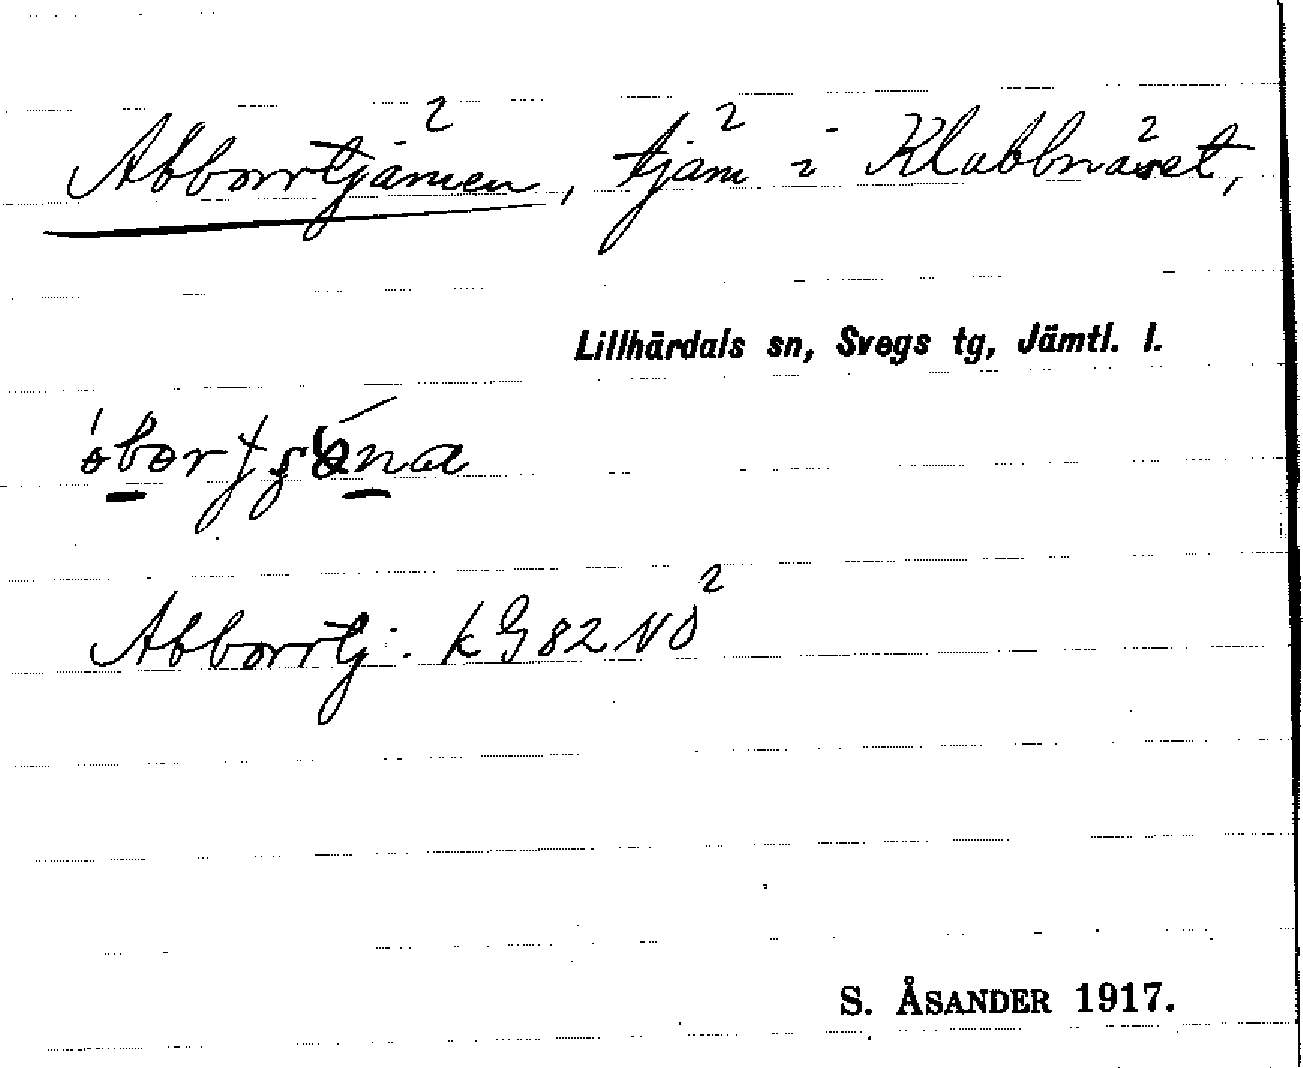 Abborrtjärnen, tjärn i Klabbnäset,
Lillhärdals sn, Svegs tg, Jämtl. l.
Abborrtj: k G 82 NO
S. ÅSANDER 1917.